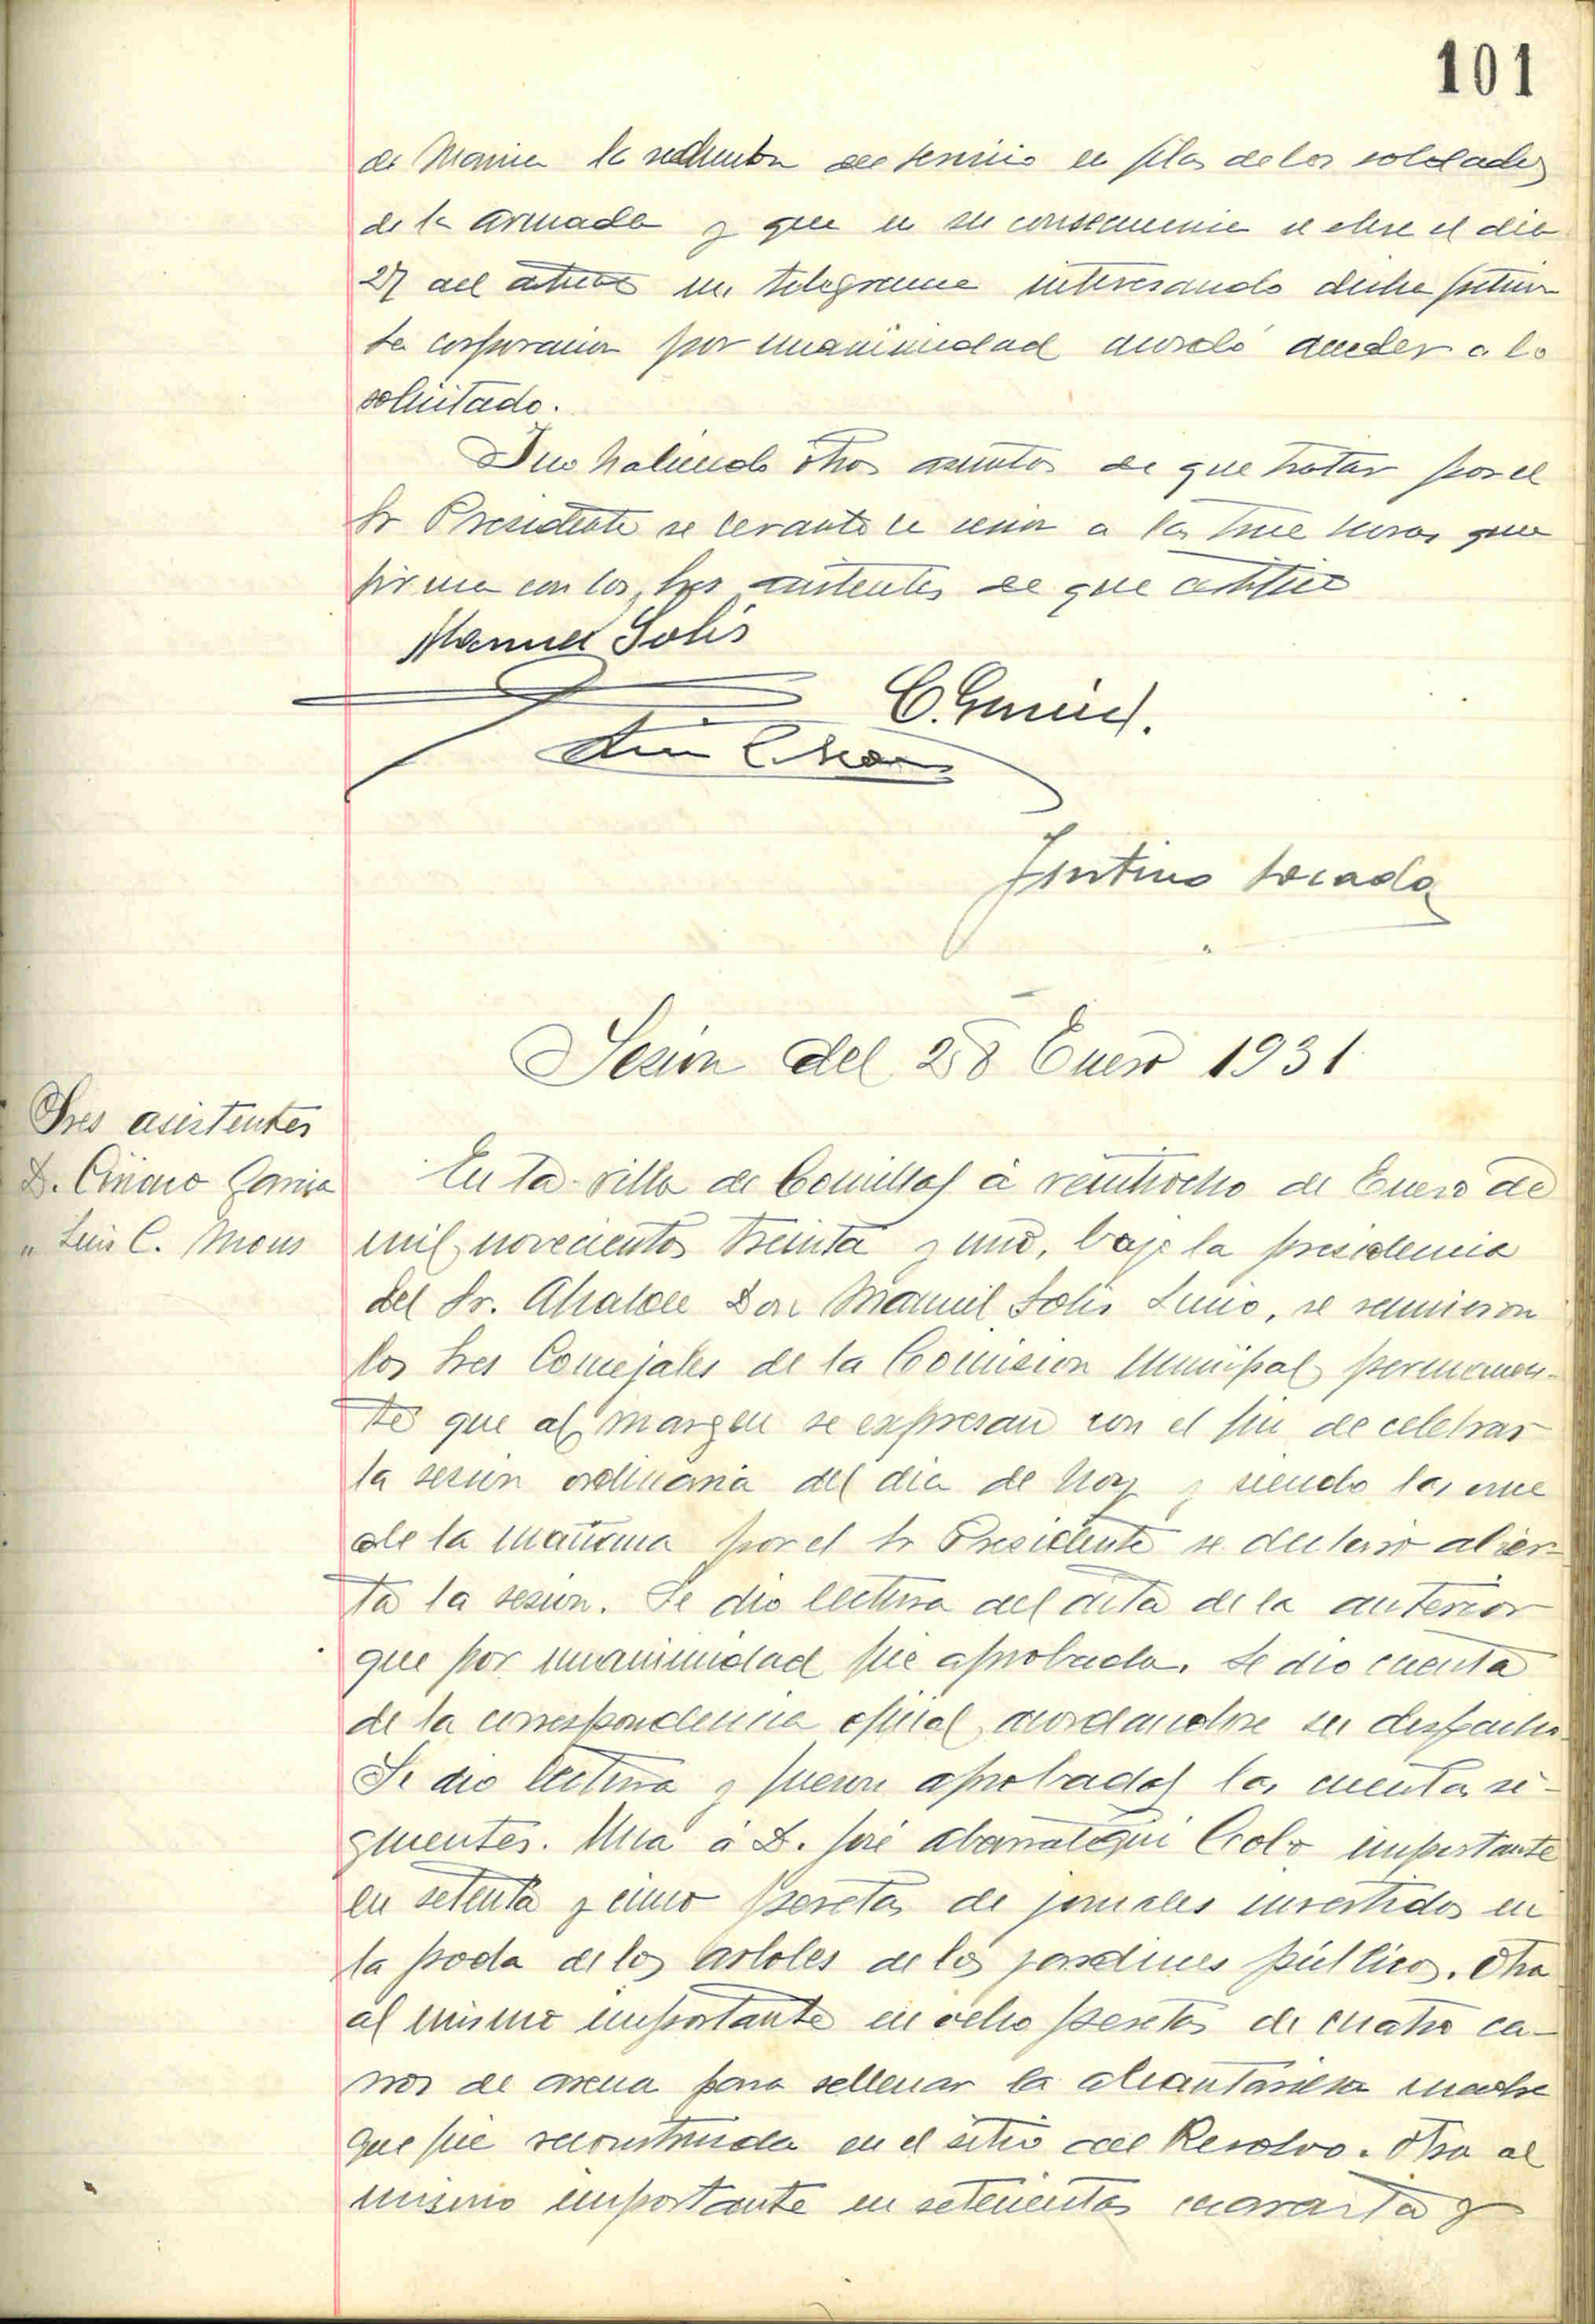 101
de Marina la reducción del servicio en filas de los soldados
de la Armada y que en su consecuencia se curse el dia
27 del actual un telegrama interesando dicha petición
la corporación por unanimidad acordó acceder a lo
solicitado.
Y no habiendo otros asuntos de que tratar por el
Sr Presidente se levanto la sesion a las once horas que
firma con los Sres asistentes de que certifico
Manuel Solis
C. García.
Luis C. Mons
Sesion del 28 Enero 1931
Sres asistentes
D. Ciriaco Garcia
" Luis C. Mons
En la villa de Comillas á veintiocho de Enero de
mil novecientos treinta y uno, bajo la presidencia
del Sr. Alcalde Don Manuel Solis, se reunieron
los Sres Concejales de la Comision Municipal permanen-
te que al margen se expresan con el fin de celebrar
la sesion ordinaria del dia de hoy y siendo las once
de la mañana por el Sr Presidente se declaro abier-
ta la sesion. Se dio lectura del acta de la anterior
que por unanimidad fue aprobada. Se dio cuenta
de la correspondencia oficial acordandose su despacho
Se dio lectura y fueron aprobadas las cuentas si-
guientes. Una á D. José importante
en setenta y cinco pesetas de jornales invertidos en
la poda de los arboles de los jardines públicos. Otra
al mismo importante en ocho pesetas de cuatro ca-
rros de arena para rellenar la alcantarilla madre
que fue reconstruida en el sitio del Resolvo. Otra al
mismo importante en setecientas cuarenta y